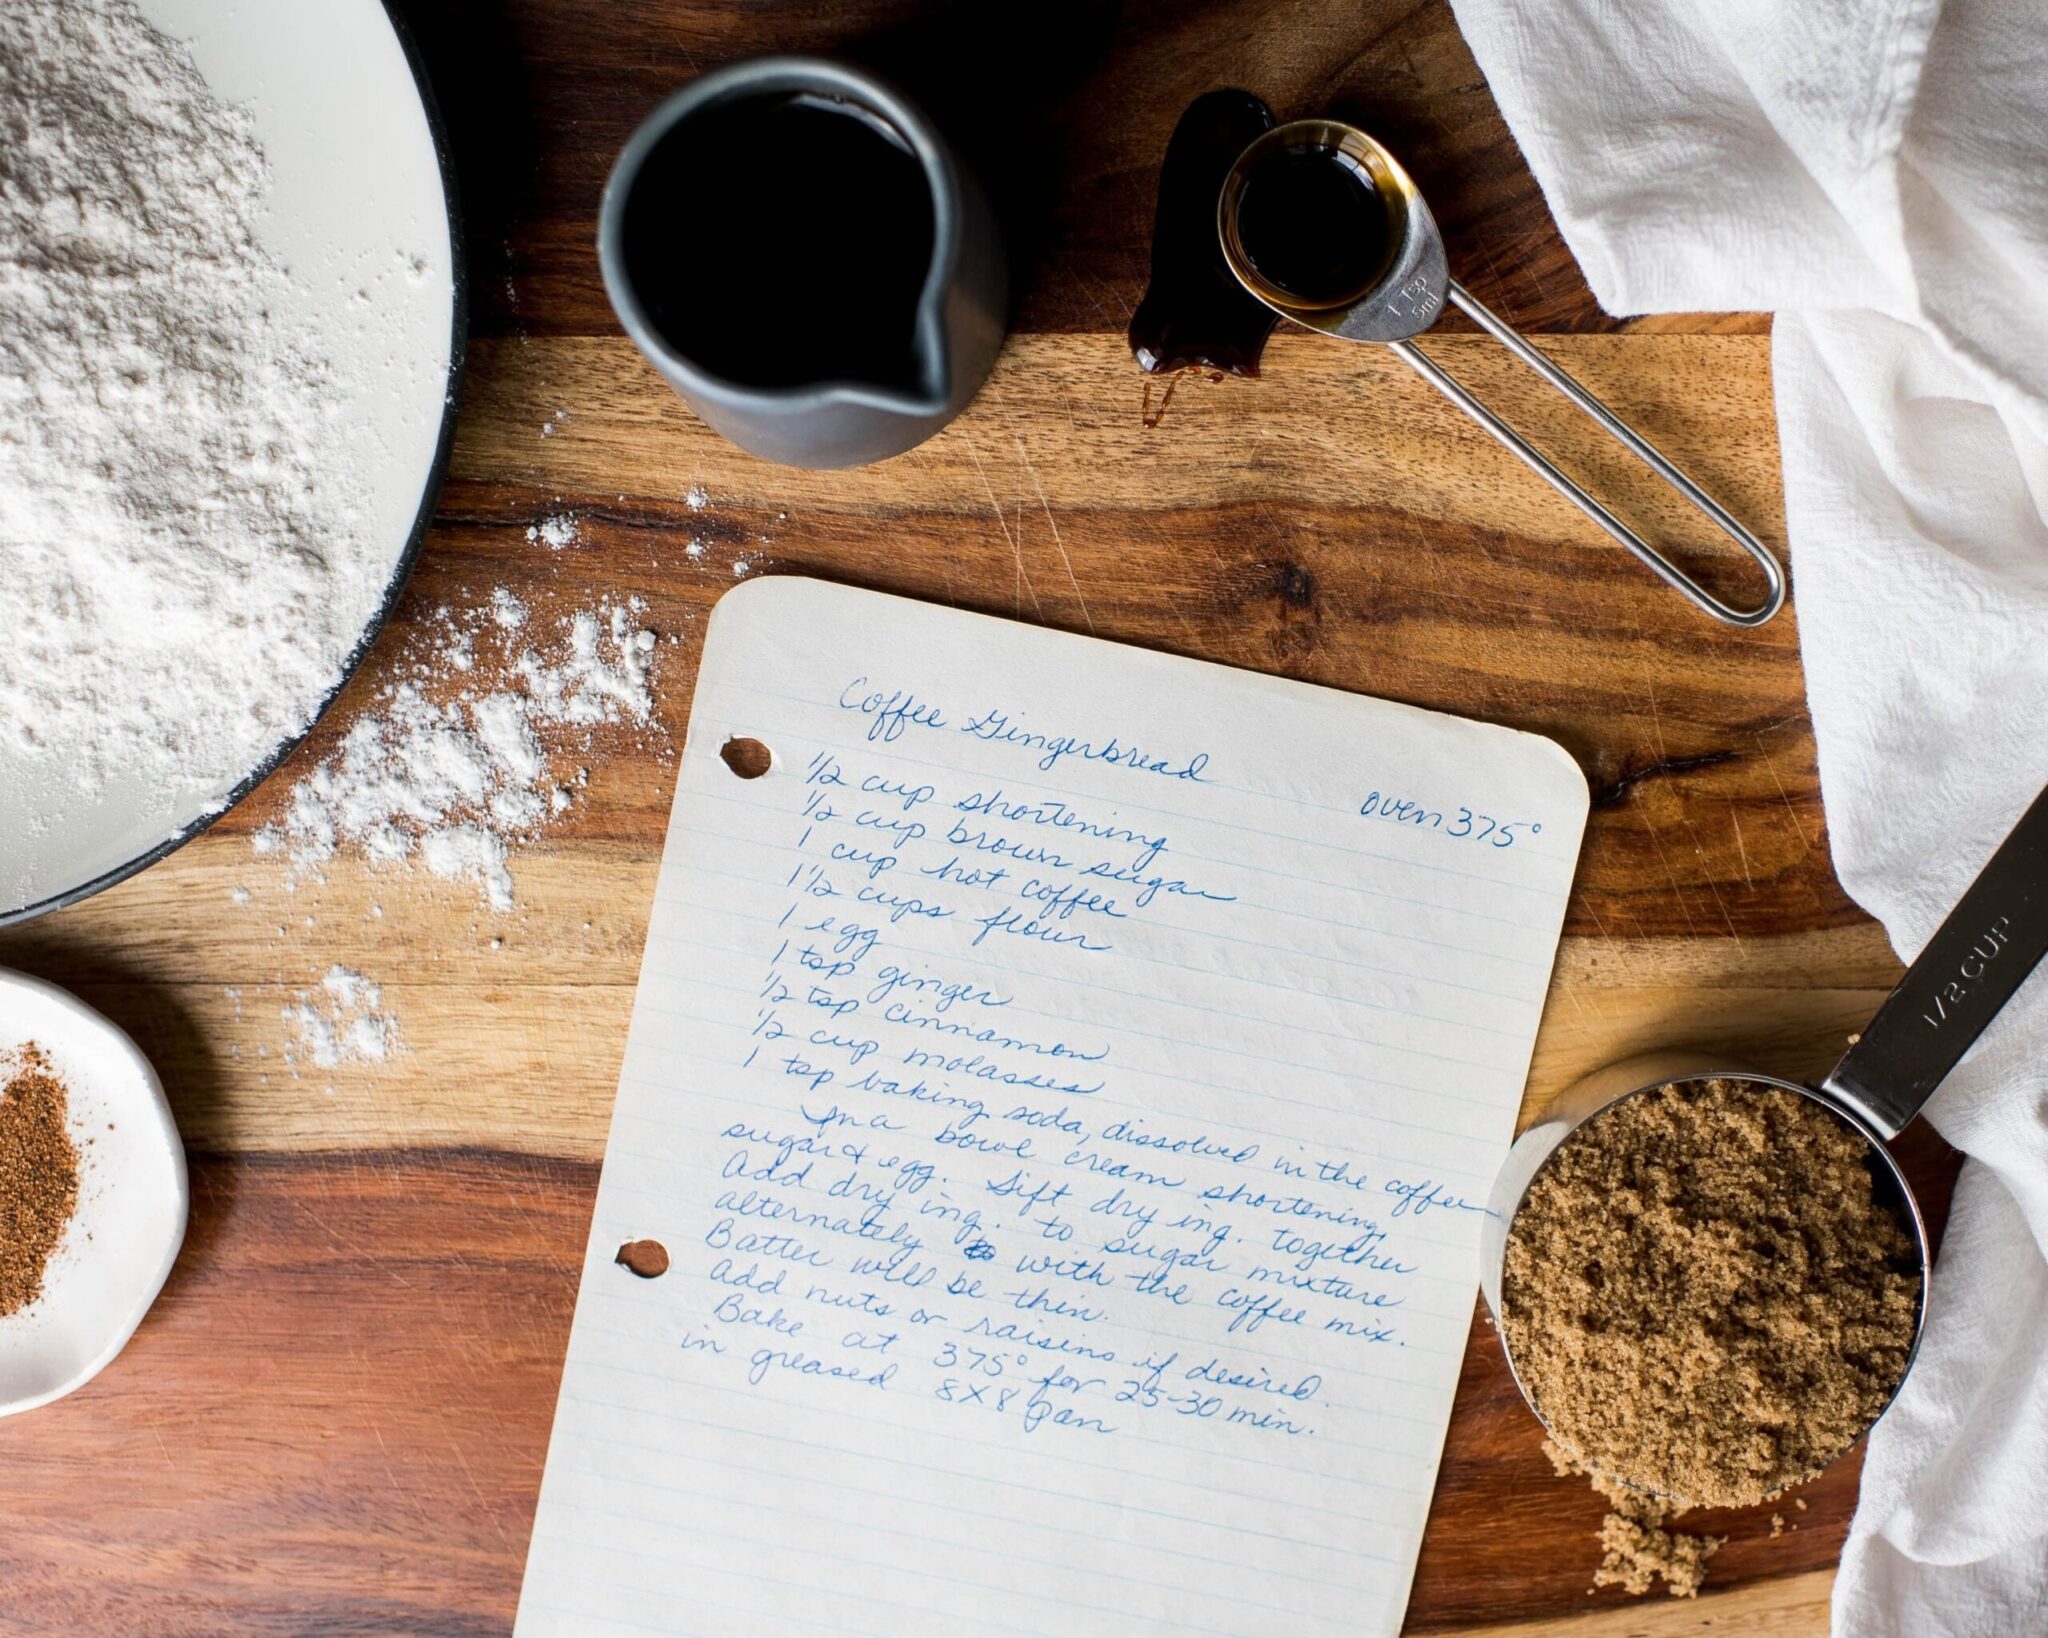 1 Tsp
5ml
Coffee Gingerbread
oven 375°
1/2 cup shortening
1/2 cup brown sugar
1 cup hot coffee
1 1/2 cups flour
1 egg
1 tsp ginger
1/2 tsp cinnamon
1/2 cup molasses
1 tsp baking soda, dissolved in the coffee
In a bowl cream shortening,
sugar & egg. Sift dry ing. together
Add dry ing. to sugar mixture
alternately with the coffee mix.
Batter will be thin.
Add nuts or raisins if desired.
Bake at 375° for 25-30 min.
in greased 8x8 pan
1/2 CUP